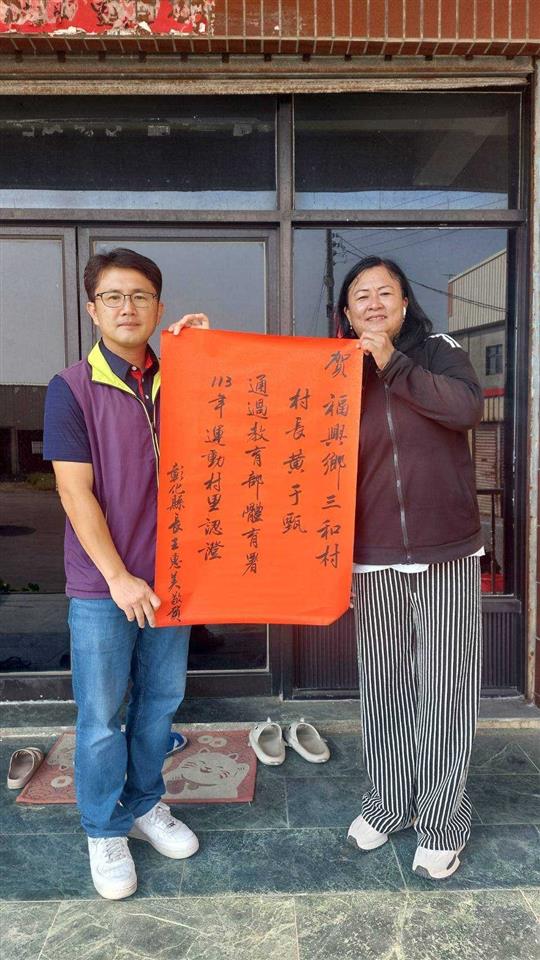 賀福興鄉三和村
村長黃于甄
通過教育部體育署
113年運動村里認證
彰化縣長王惠美敬賀